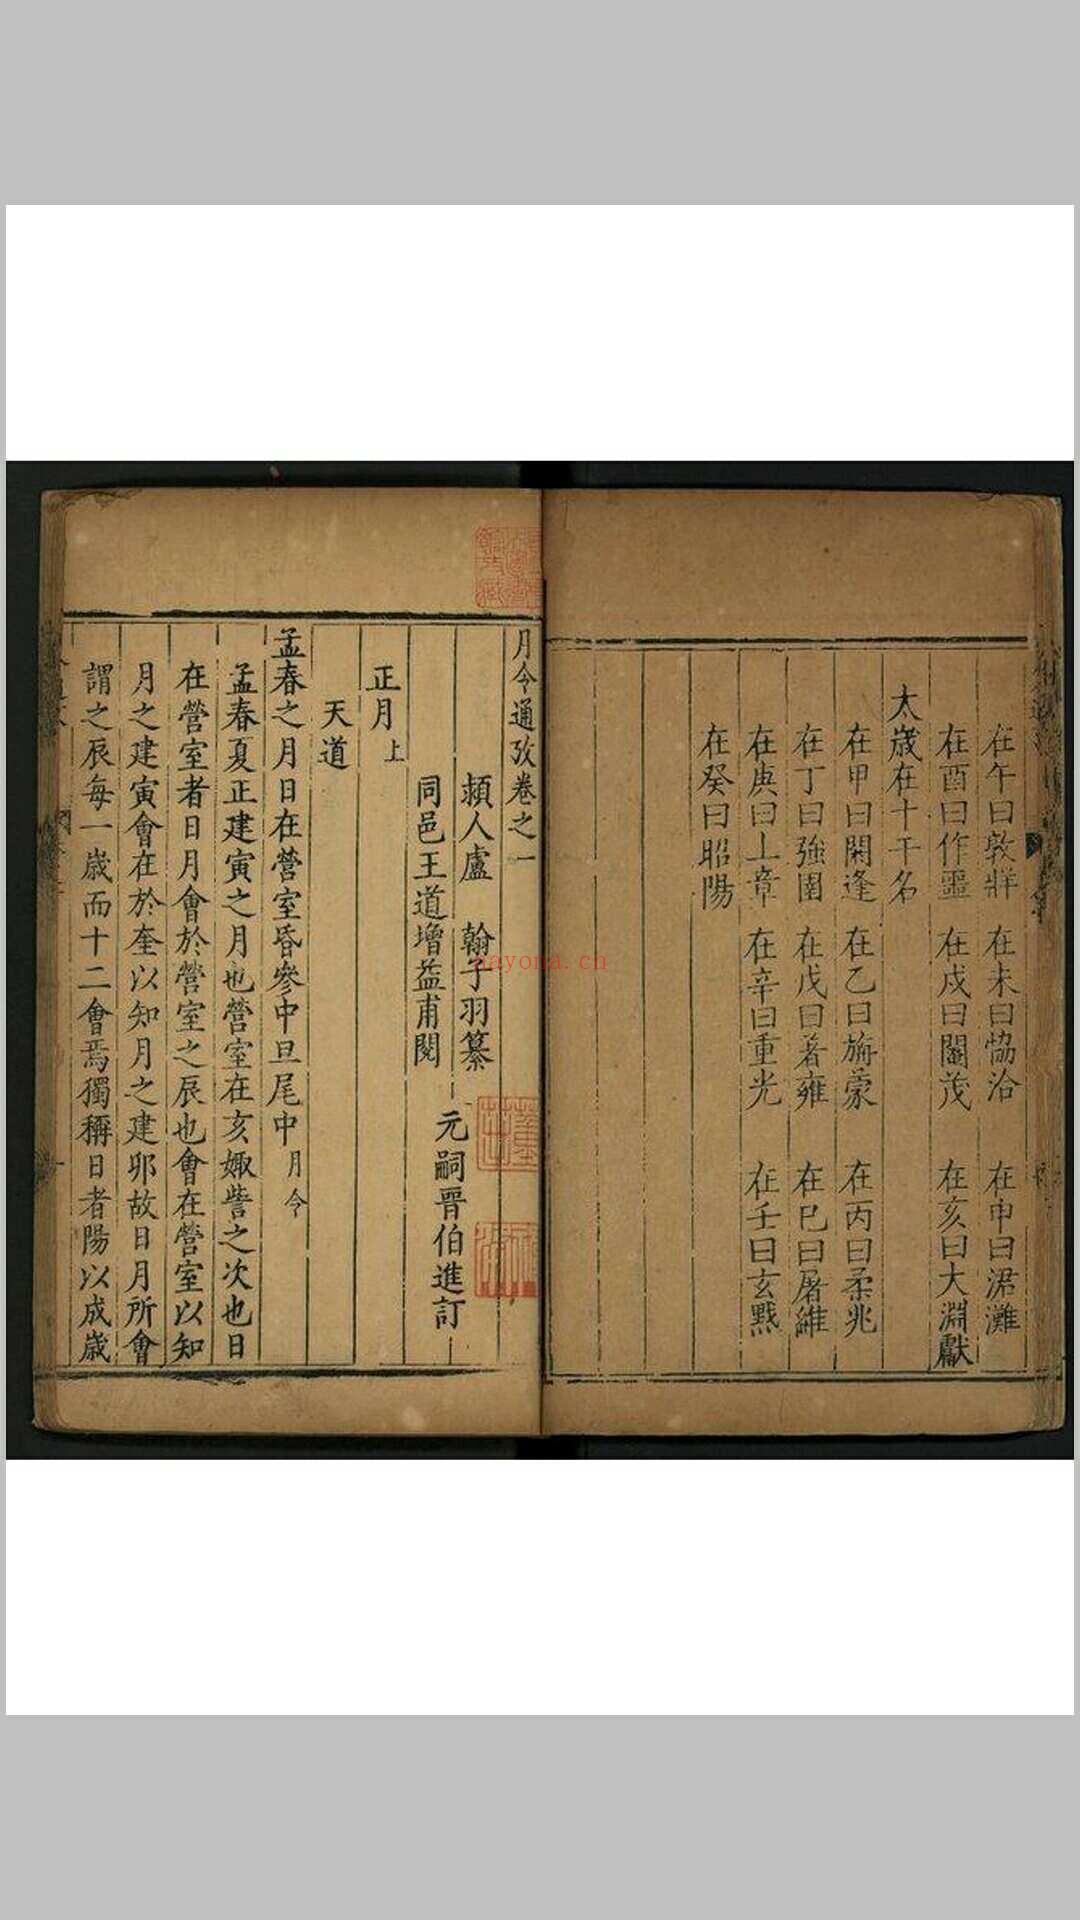 在午曰敦牂 在未曰協洽 在申曰涒灘
在酉曰作噩 在戌曰閹茂 在亥曰大淵獻
太歲在十干名
在甲曰閼逢 在乙曰旃蒙 在丙曰柔兆
在丁曰強圉 在戊曰著雍 在巳曰屠維
在庚曰上章 在辛曰重光 在壬曰玄黓
在癸曰昭陽
月令通攷卷之一
潁人盧 翰子羽纂
元嗣晉伯進訂
同邑王道增益甫閱
正月上
天道
孟春之月日在營室昏參中旦尾中月令
孟春夏正建寅之月也營室在亥娵訾之次也日
在營室者日月會於營室之辰也會在營室以知
月之建寅會在於奎以知月之建卯故日月所會
謂之辰每一歲而十二會焉獨稱日者陽以成歲
nayona.cn